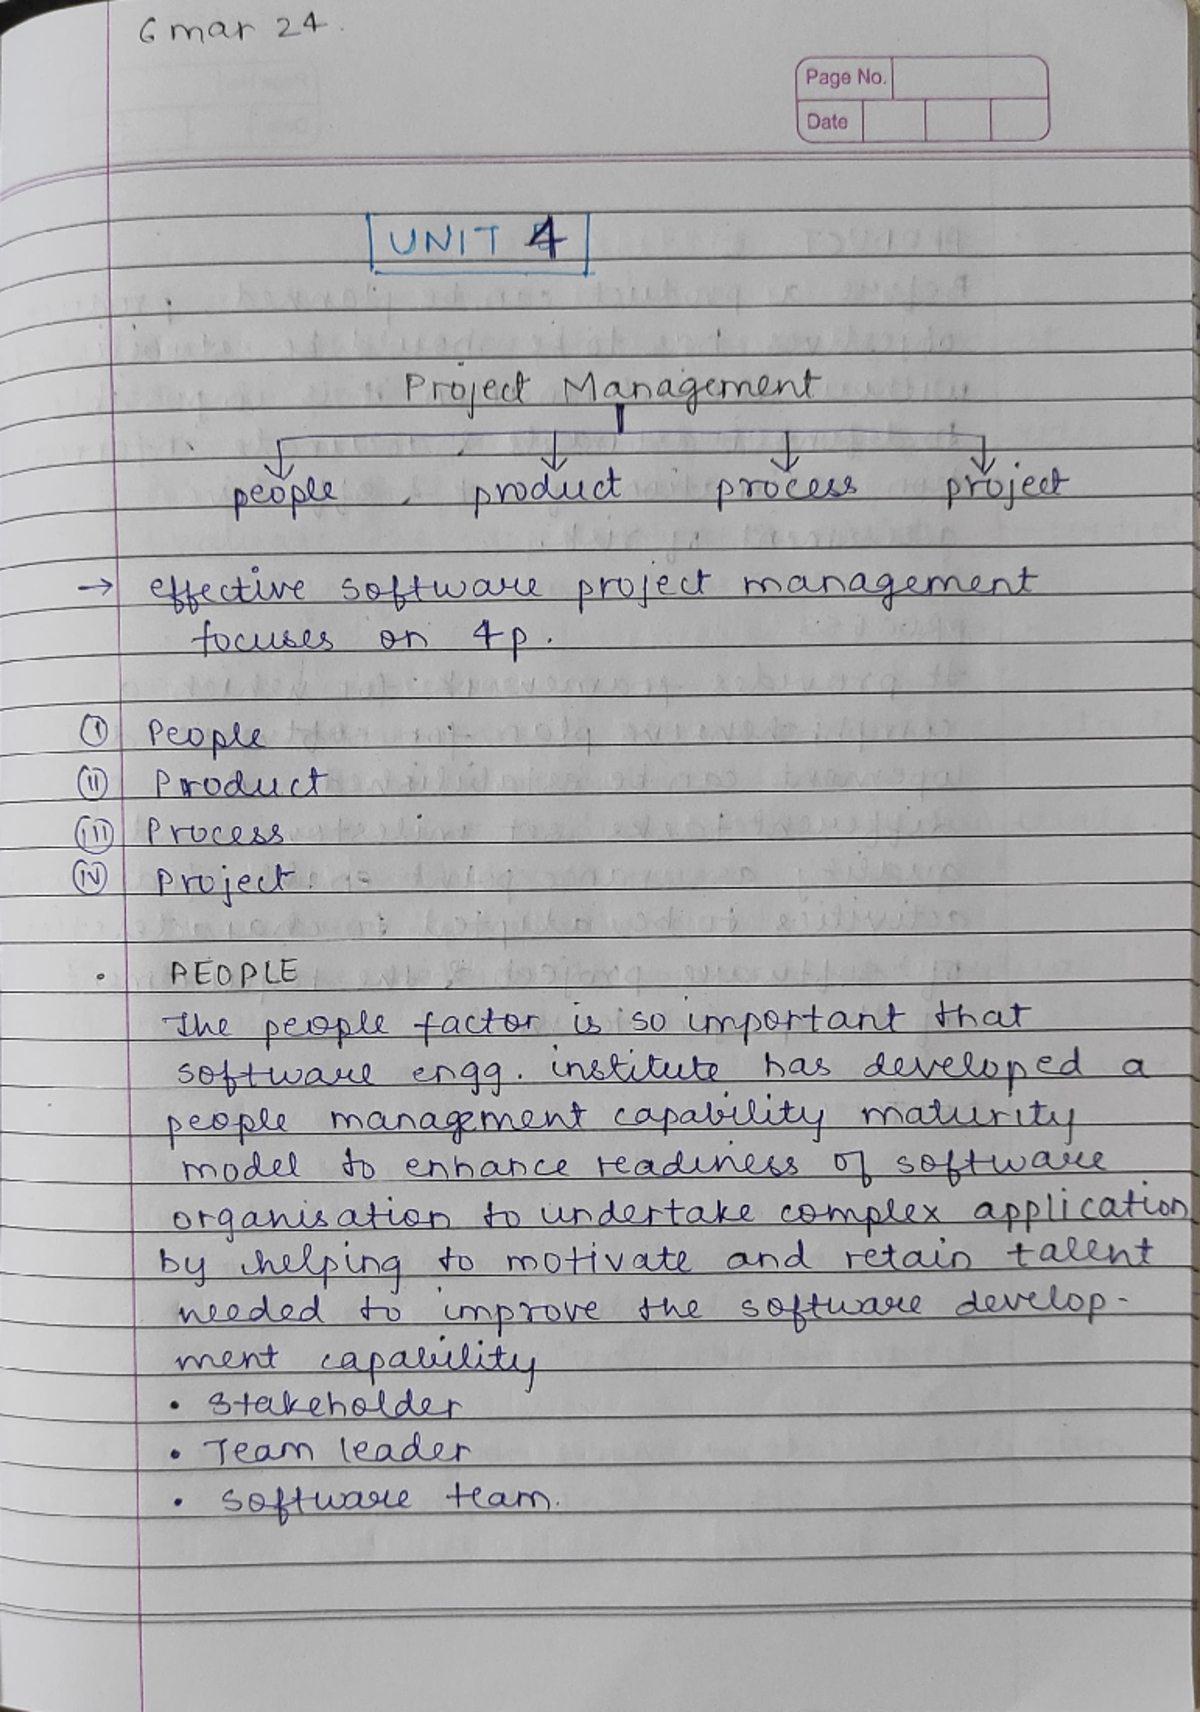 6 mar 24.
Page No.
Date
UNIT 4
Project Management
people product process project
→ effective software project management
focuses on 4p.
(i) People
(ii) Product
(iii) Process
(iv) Project.
• PEOPLE
The people factor is so important that
software engg. institute has developed a
people management capability maturity
model to enhance readiness of software
organisation to undertake complex application
by helping to motivate and retain talent
needed to improve the software develop-
ment capability
• Stakeholder
• Team leader
• software team.